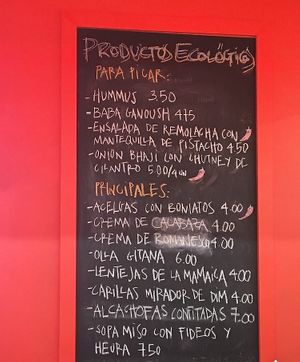 PRODUCTOS ECOLÓGICOS
PARA PICAR:
- HUMMUS 3.50
- BABA GANOUSH 4.75
- ENSALADA DE REMOLACHA CON
MANTEQUILLA DE PISTACHO 4.50
- ONION BHAJI CON CHUTNEY DE
CILANTRO 5.00/4un
PRINCIPALES:
- ACELGAS CON BONIATOS 4.00
- CREMA DE CALABAZA 4.00
- CREMA DE ROMANESCO 4.00
- OLLA GITANA 6.00
- LENTEJAS DE LA MAMAÍCA 4.00
- CARILLAS MIRADOR DE DIM 4.00
- ALCACHOFAS CONFITADAS 7.00
- SOPA MISO CON FIDEOS Y
HEURA 7.50